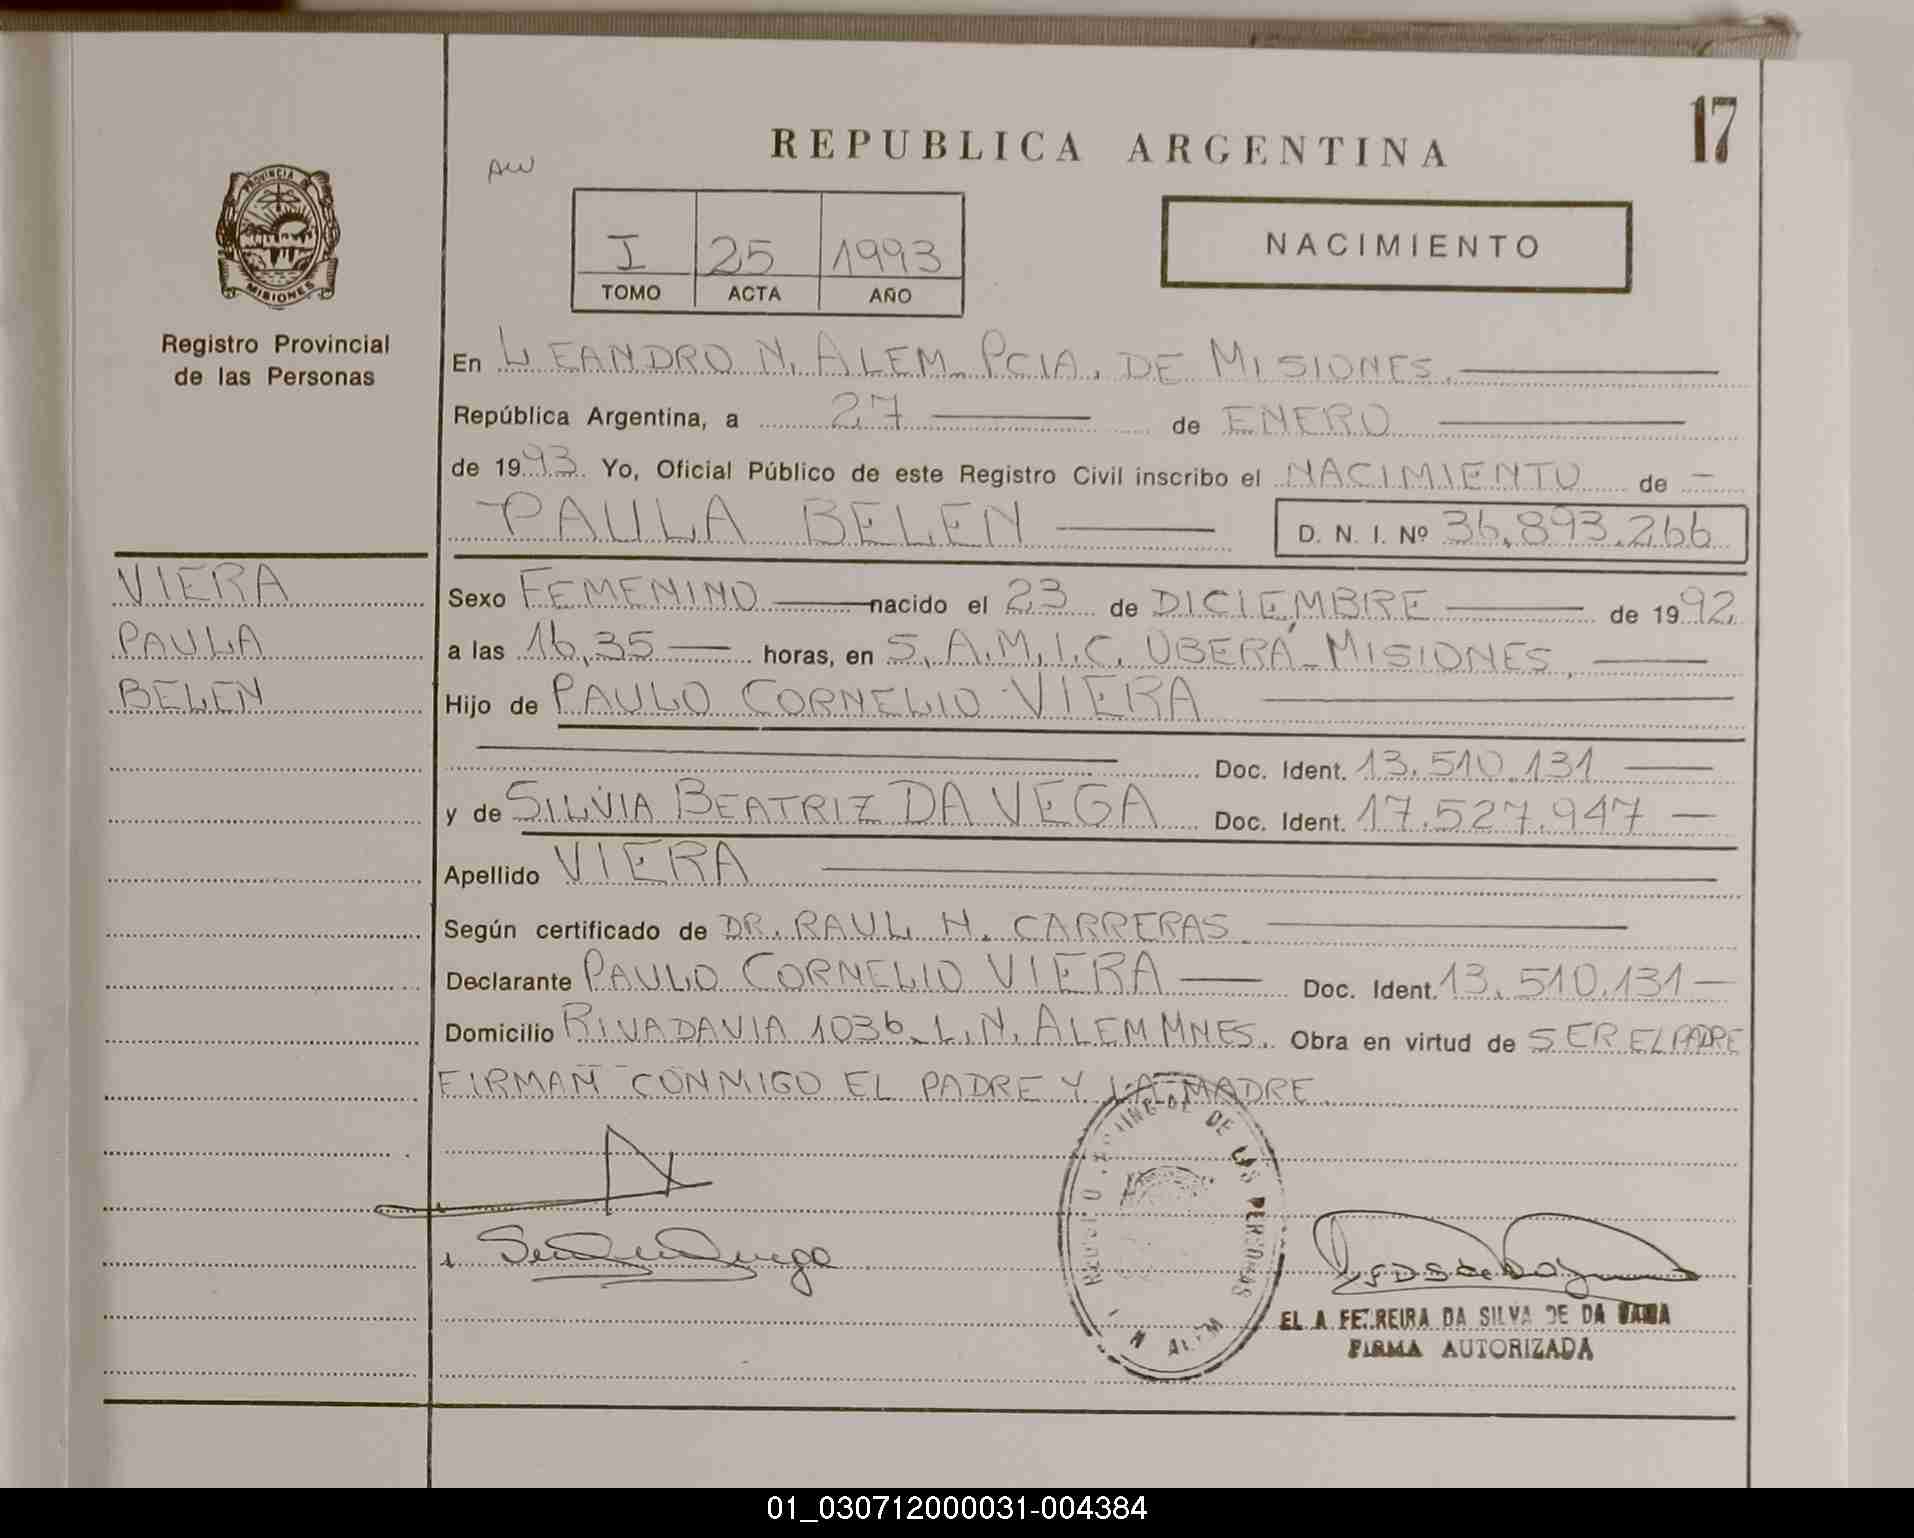 17
REPUBLICA ARGENTINA
AW
PROVINCIA DE
MISIONES
Registro Provincial
de las Personas
I 25 1993
TOMO ACTA AÑO
NACIMIENTO
En LEANDRO N. ALEM PCIA. DE MISIONES.
República Argentina, a 27 de ENERO
de 1993. Yo, Oficial Público de este Registro Civil inscribo el NACIMIENTO de
PAULA BELEN D. N. I. Nº 36.893.266
VIERA
PAULA
BELEN
Sexo FEMENINO nacido el 23 de DICIEMBRE de 1992
a las 16,35 horas, en S.A.M.I.C. OBERÁ-MISIONES
Hijo de PAULO CORNELIO VIERA
Doc. Ident. 13.510.131
y de SILVIA BEATRIZ DA VEGA Doc. Ident. 17.527.947
Apellido VIERA
Según certificado de DR. RAUL H. CARRERAS
Declarante PAULO CORNELIO VIERA Doc. Ident. 13.510.131
Domicilio RIVADAVIA 1036 L.N. ALEM MNES. Obra en virtud de SER EL PADRE
FIRMAN CONMIGO EL PADRE Y LA MADRE.
DE LAS PERSONAS
N ALEM
FERREIRA DA SILVA DE DA
FIRMA AUTORIZADA
01_030712000031-004384